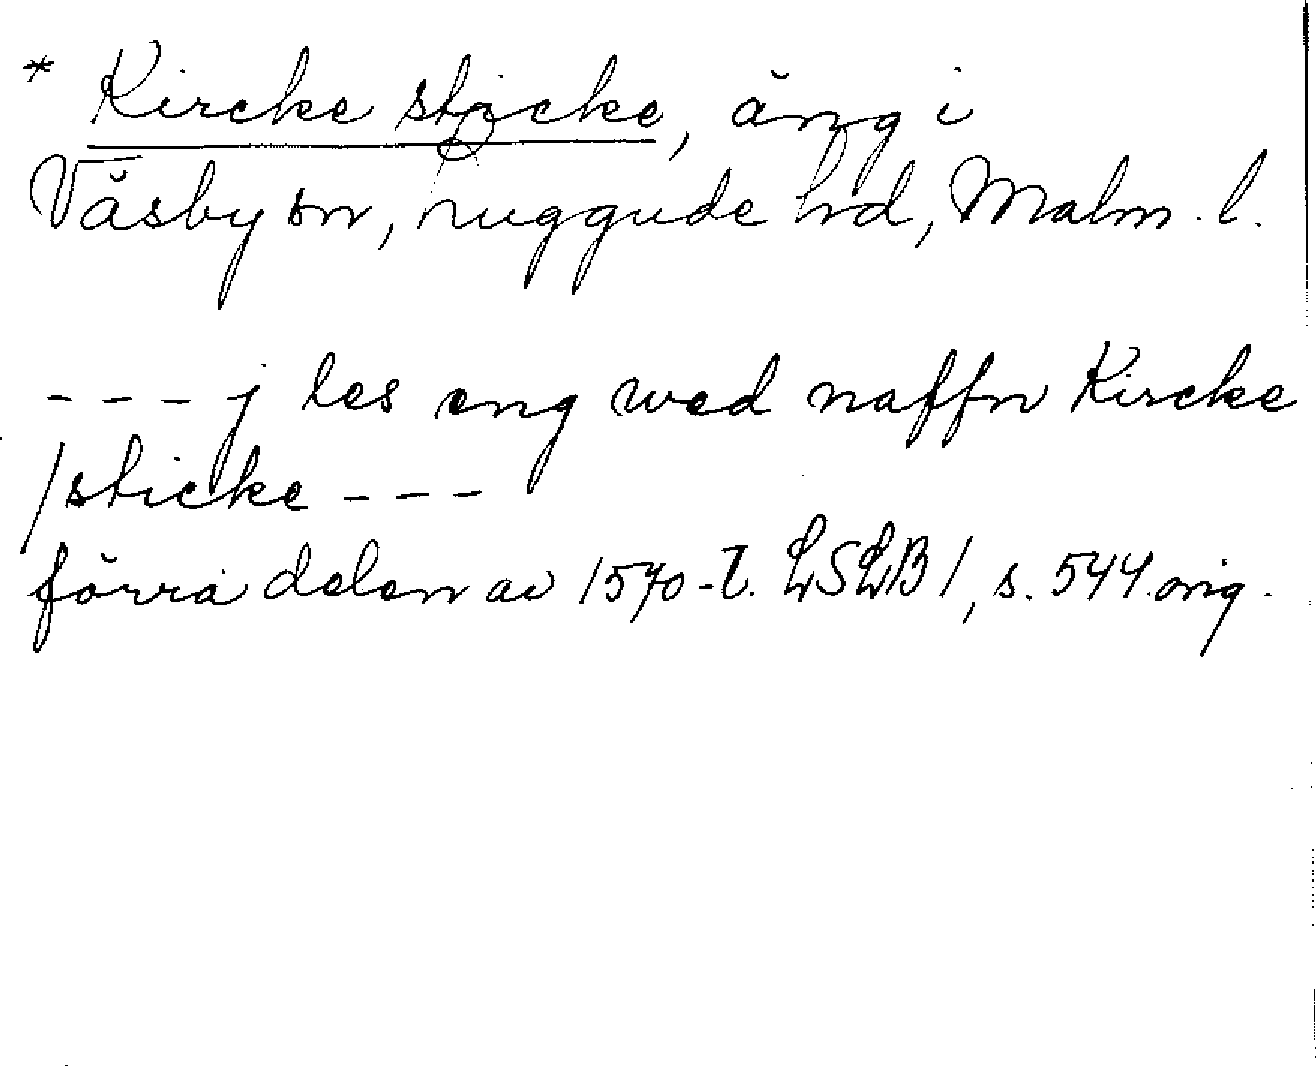 * Kircke sticke, äng i
Väsby sn, Luggude hd, Malm. l.
- - - j les eng wed naffn Kircke
/sticke - - -
förra delen av 1570-t. LSLB 1, s. 544. orig.